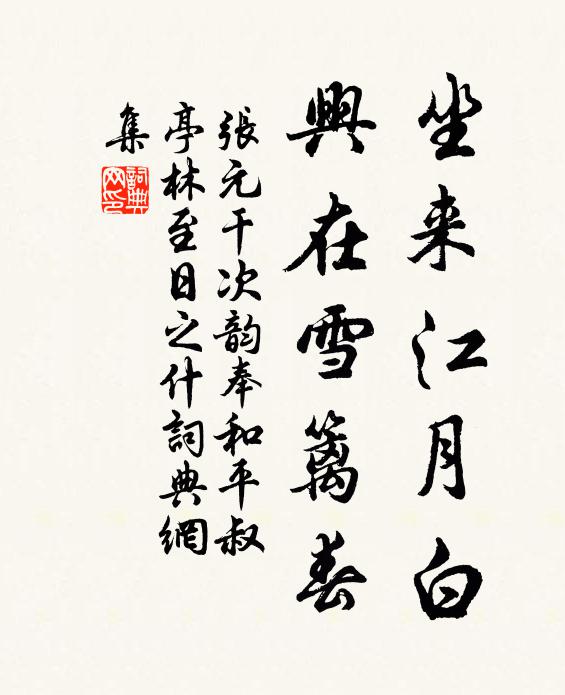 坐来江月白
興在雪篱春
張元干次韵奉和平叔
亭林至日之什詞典網
集
詞典网印